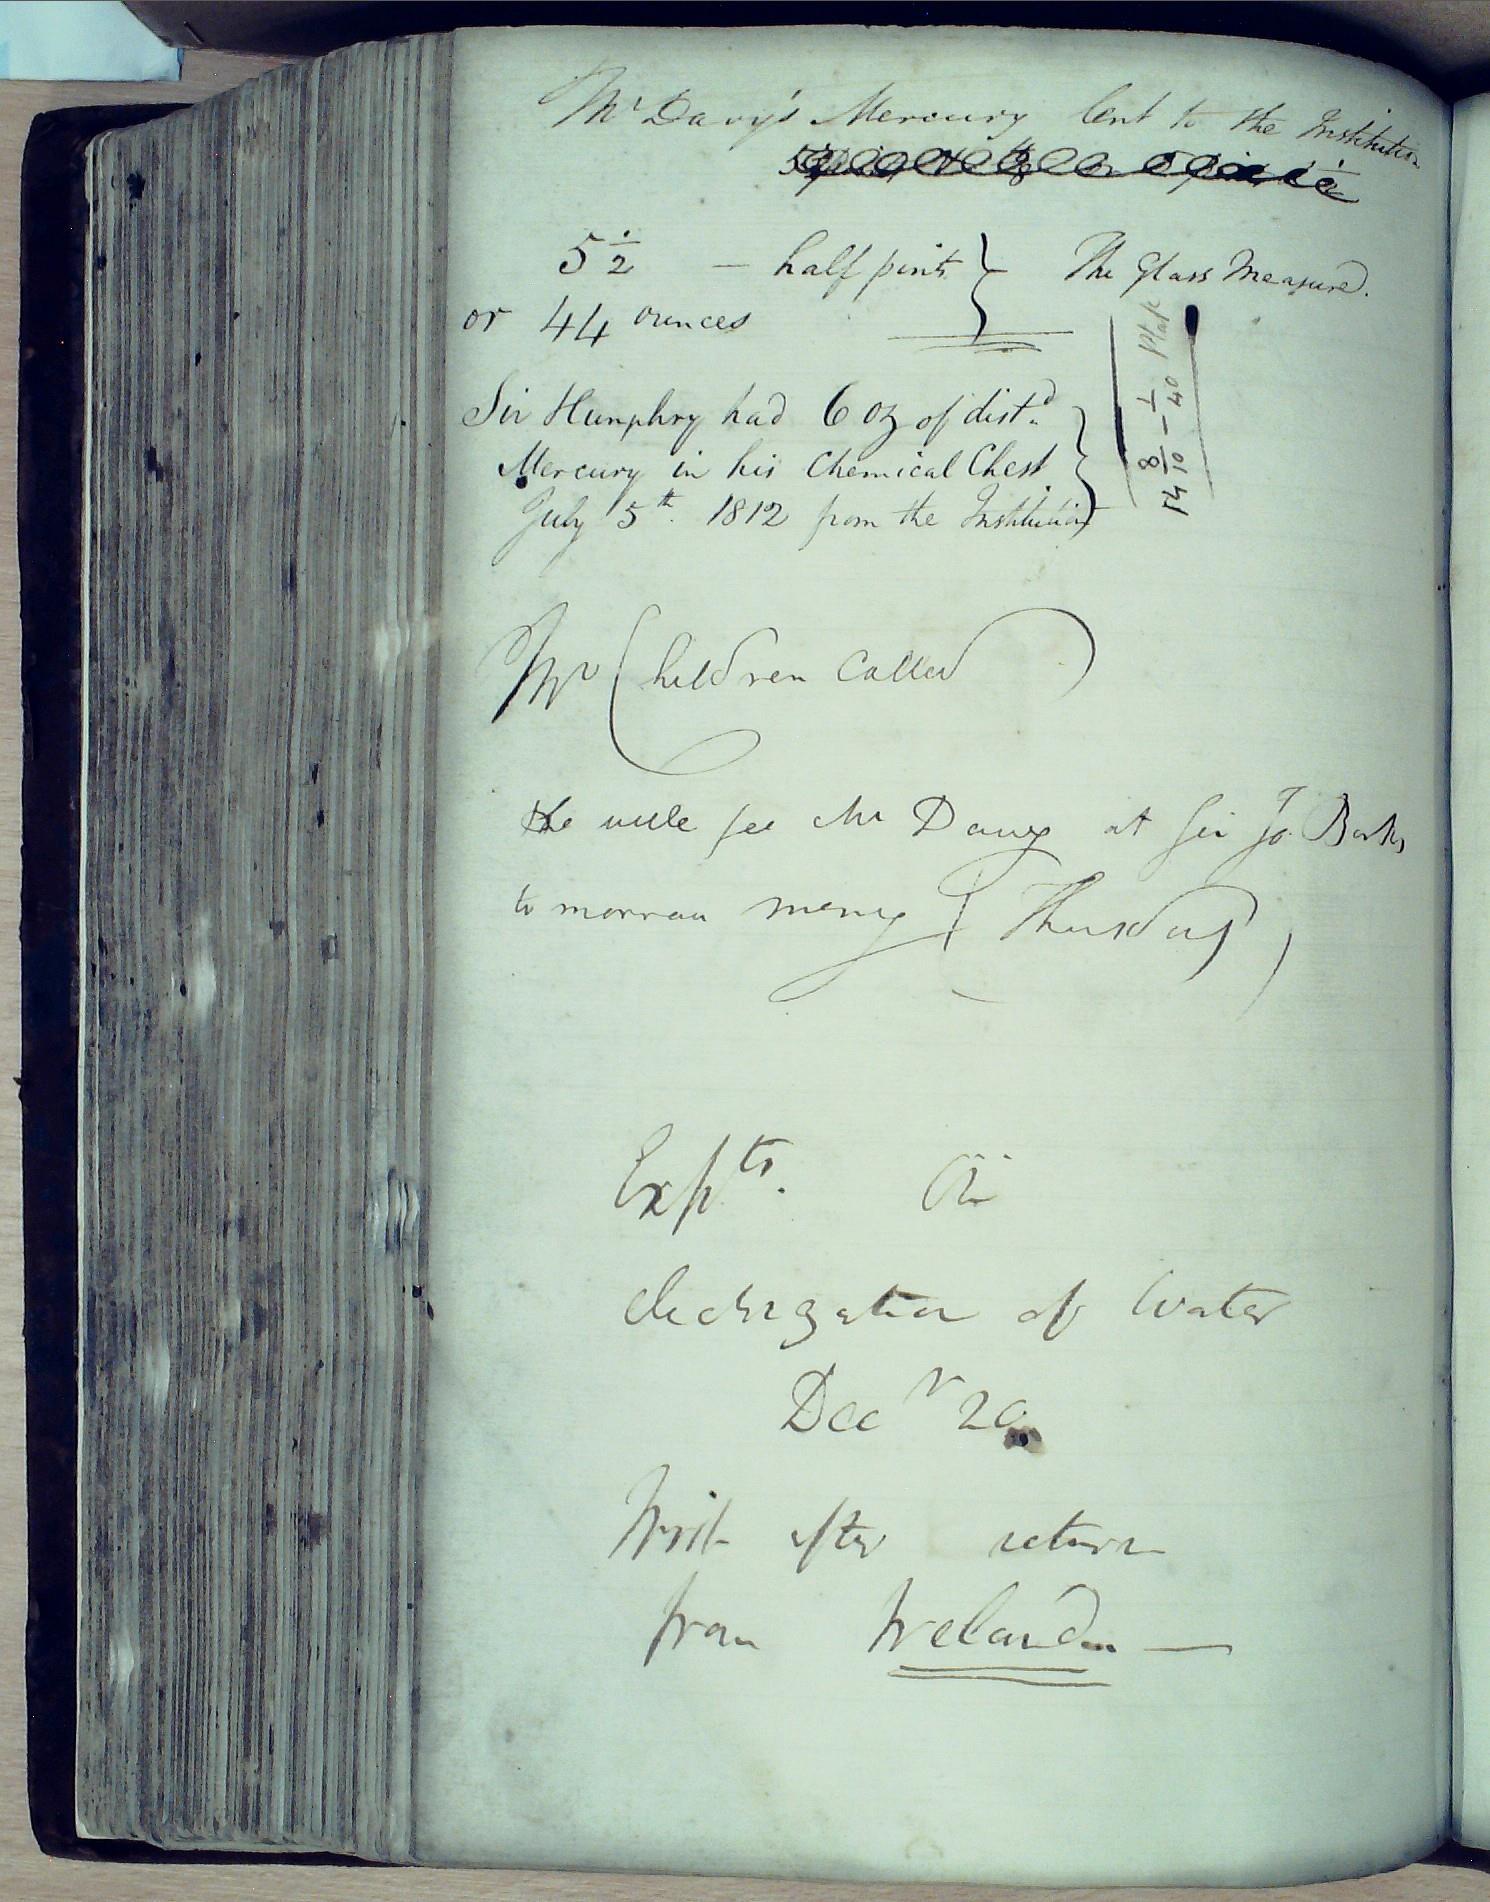 Mr Davy's Mercury lent to the Institution
5 1/2 — half pints } The Glass Measure.
or 44 ounces
Sir Humphry had 6 oz of distd
Mercury in his Chemical Chest
July 5th. 1812 from the Institution
14 8/10 – 1/40 Plate
Mr Children Called
he will see Mr Davy at Sir Jo. Banks
to morrow morng Thursday
Expts. On
electrization of Water
Decr 20
Writ after return
from Ireland —